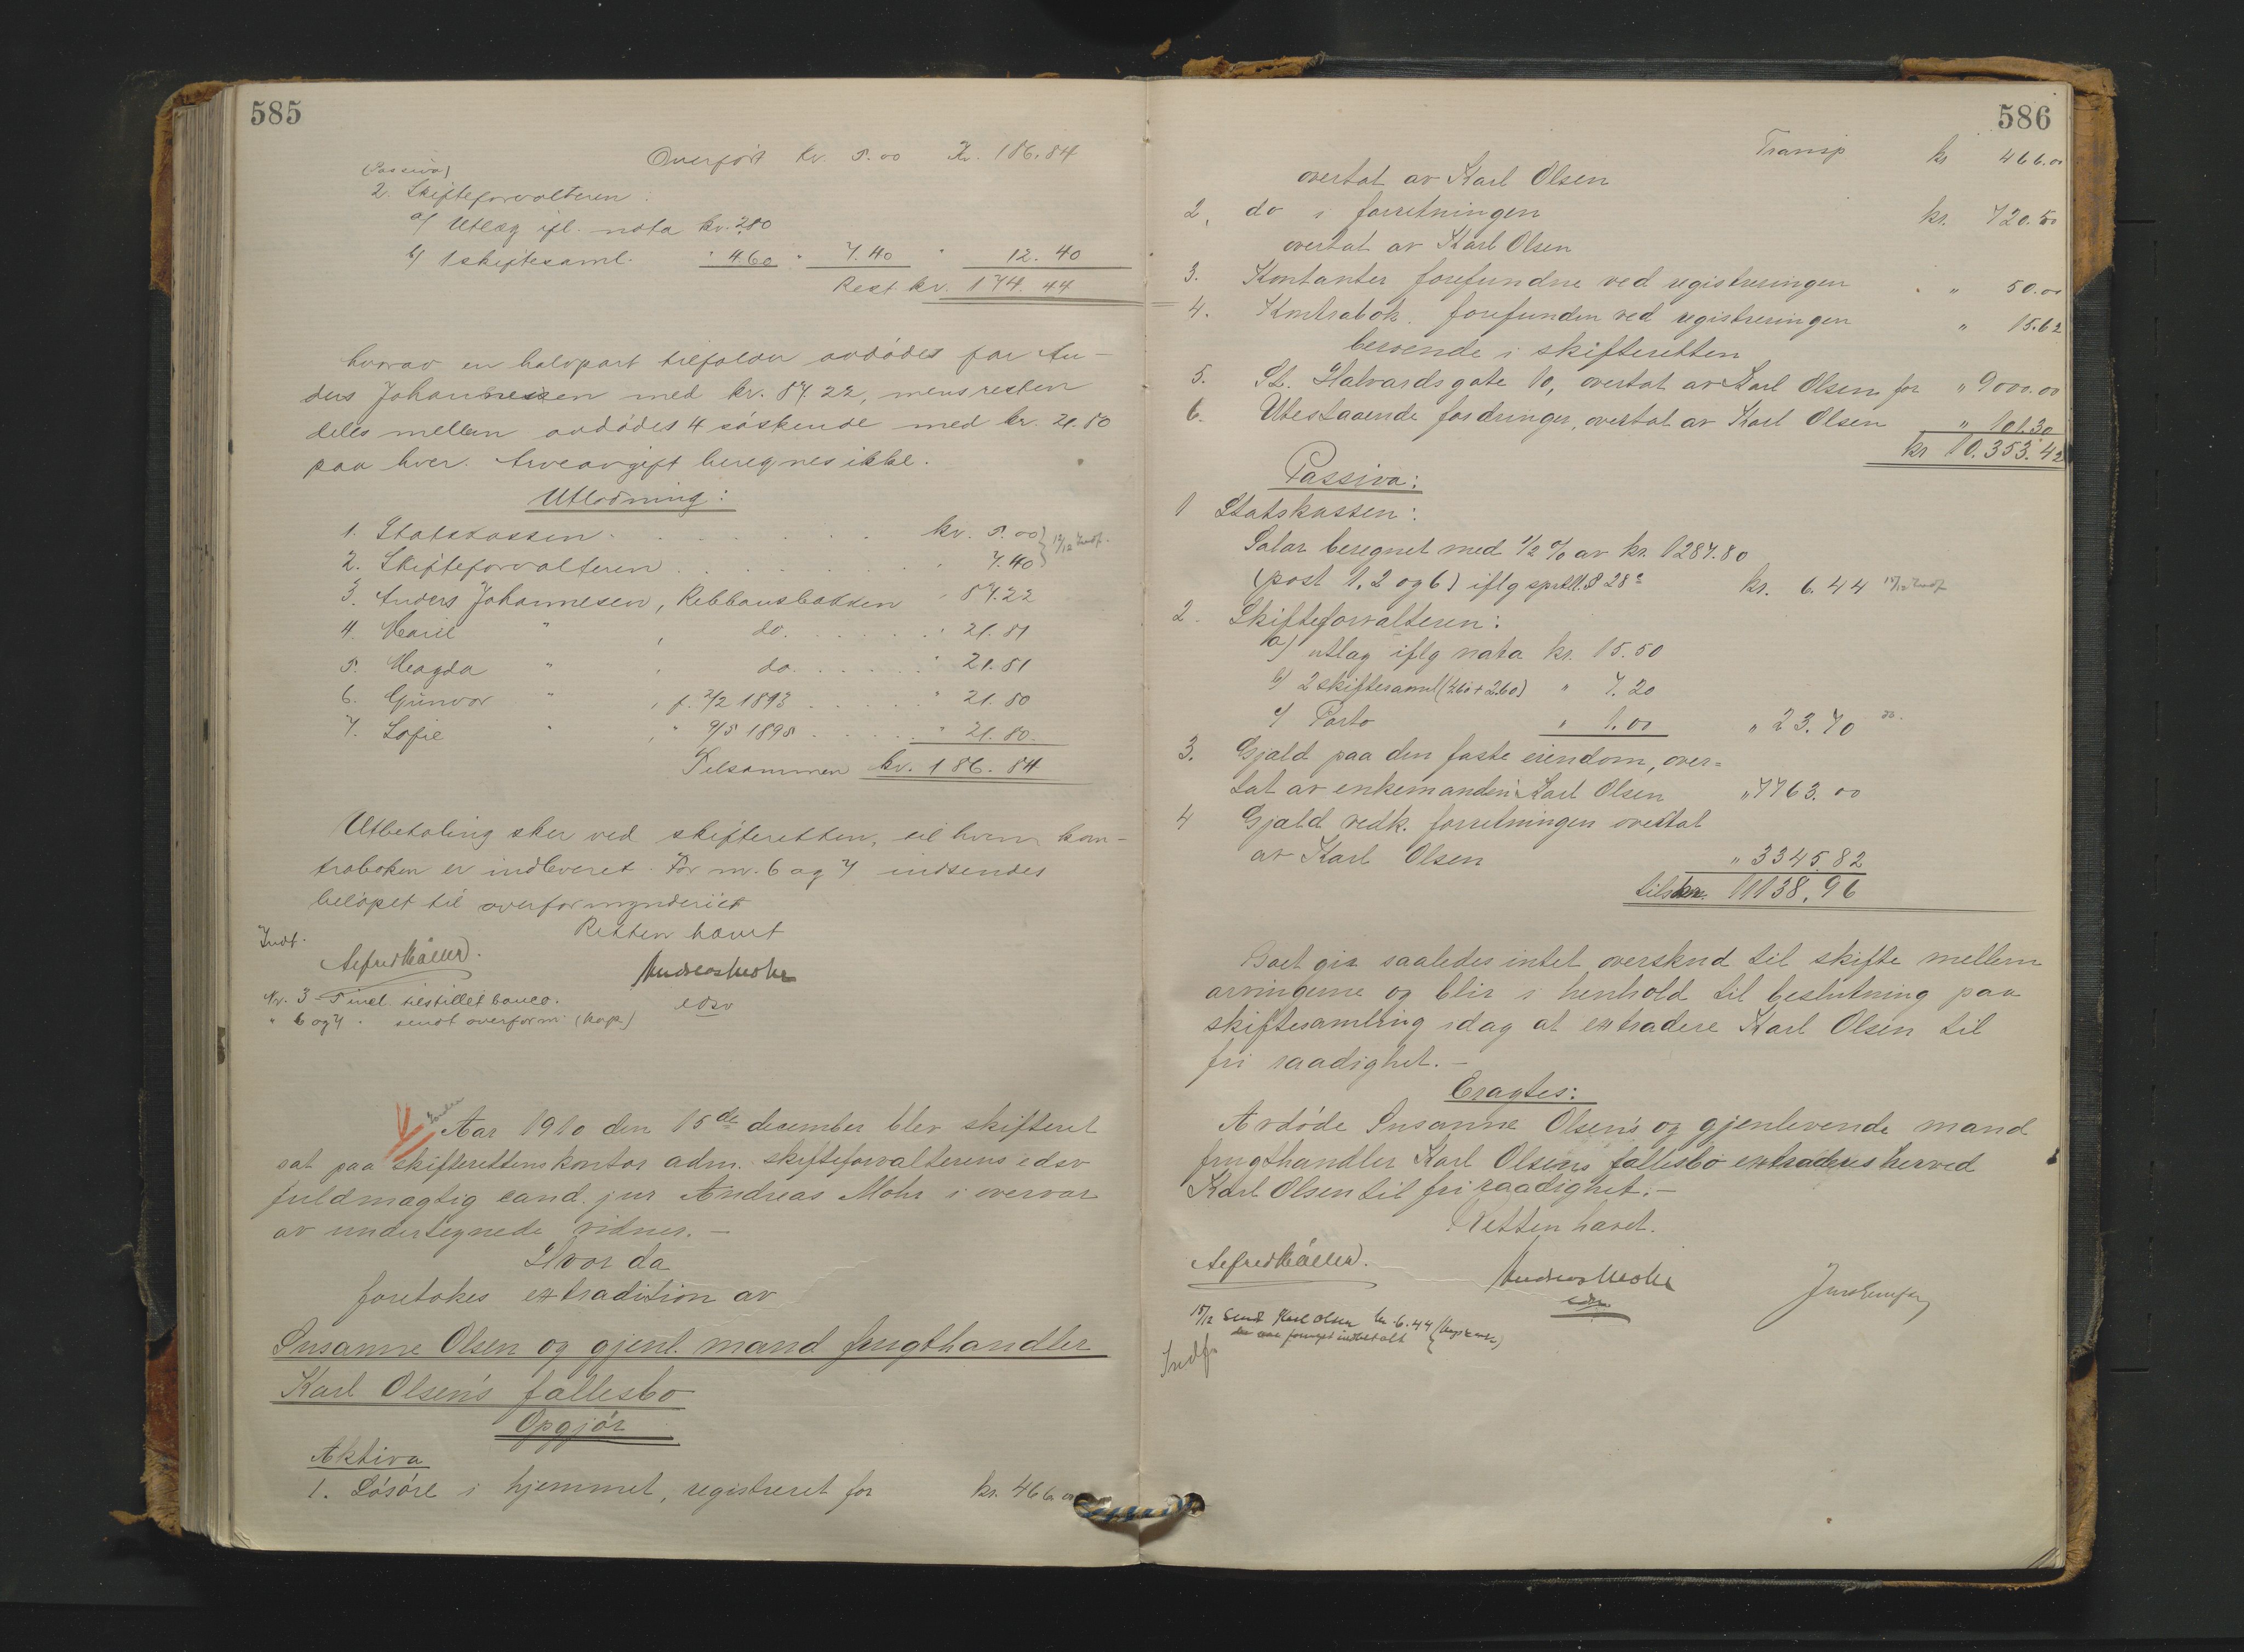 585
Overført kr. 5.00 Kr. 186.84
(Passiva)
2. Skifteforvalteren:
a/ Utlæg ifl. nota kr. 2.80
b/ 1 skiftesaml. " 4.60 " 7.40 " 12.40
Rest kr. 174.44
hvorav en halvpart tilfalder avdødes far An-
ders Johannesen med kr. 87.22, mens resten
deles mellem avdødes 4 søskende med kr. 21.80
paa hver. Arveavgift beregnes ikke.
Utlodning:
1. Statskassen . . . . . . kr. 5.00 } 12/12 Indf.
2. Skifteforvalteren . . . . . . " 7.40
3. Anders Johannesen, Rebbansbakken " 87.22
4. Marie " , do. . . . . " 21.81
5. Magda " , do. . . . . " 21.81
6. Gunvor " , f. 2/2 1893 . . . . . " 21.80
7. Sofie " , " 9/5 1898 . . . . . " 21.80.
Tilsammen kr. 186.84
Utbetaling sker ved skifteretten, til hvem kon-
traboken er indleveret. For nr. 6 og 7 indsendes
beløpet til overformynderiet
Retten hævet
Indf.
Alfred Møller. Andreas Mohr
edsv
Nr. 3-5 incl. tilstillet banco.
" 6 og 7 " sendt overform. (Kap.)
Aar 1910 den 15de december blev skifteret
sat paa skifterettens kontor adm. skifteforvalterens edsv
fuldmægtig cand. jur Andreas Mohr i overvær
av undertegnede vidner. —
Hvor da
foretokes extradition av
Susanne Olsen og gjenl. mand frugthandler
Karl Olsen's fællesbo
Opgjør
Aktiva
1. Løsøre i hjemmet, registreret for kr. 466.00
586
Transp kr 466.00
overtat av Karl Olsen
2. do i forretningen kr. 720.50
overtat av Karl Olsen
3. Kontanter forefundne ved registreringen " 50.00
4. Kontrabok forefunden ved registreringen " 15.62
beroende i skifteretten
5. St. Halvardsgate 10, overtat av Karl Olsen for " 9000.00
6. Utestaaende fordringer, overtat av Karl Olsen " 101.30
kr 10.353.42
Passiva:
1 Statskassen:
Salær beregnet med 1/2 % av kr. 1287.80
(post 1, 2 og 6) iflg sprtll. § 28 kr. 6.44 15/12 Indf
2. Skifteforvalteren:
a) utlæg iflg nota kr. 15.50
b) 2 skiftesaml (4.60 + 2.60) " 7.20
c/ Porto " 1.00 " 23.70 do.
3. Gjæld paa den faste eiendom, over=
tat av enkemanden Karl Olsen " 7763.00
4 Gjæld vedk. forretningen overtat
av Karl Olsen " 3345.82
tils. kr. 11138.96
Boet gir saaledes intet overskud til skifte mellem
arvingerne og blir i henhold til beslutning paa
skiftesamling idag at extradere Karl Olsen til
fri raadighet. —
Eragtes:
Avdøde Susanne Olsen's og gjenlevende mand
frugthandler Karl Olsens fællesbo extraderes herved
Karl Olsen til fri raadighet. —
Retten hævet.
Alfred Møller. Andreas Mohr
edsv
15/12 Sendt Karl Olsen kr 6.44
Indf.